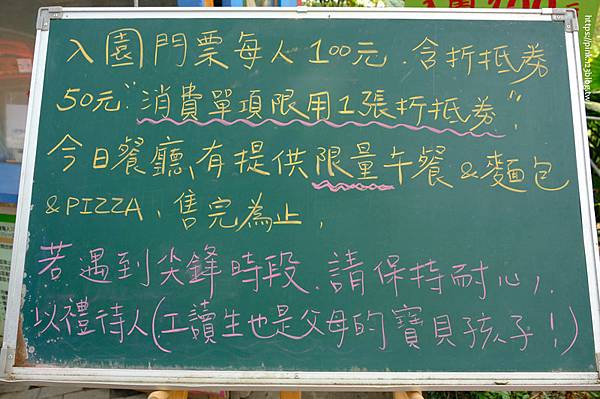 入園門票每人100元.含折抵券
50元"消費單項限用1張折抵券",
今日餐廳有提供限量午餐&麵包
&PIZZA、售完為止,
若遇到尖鋒時段.請保持耐心,.
以禮待人(工讀生也是父母的寶貝孩子!)
https://pink.123blog.tw